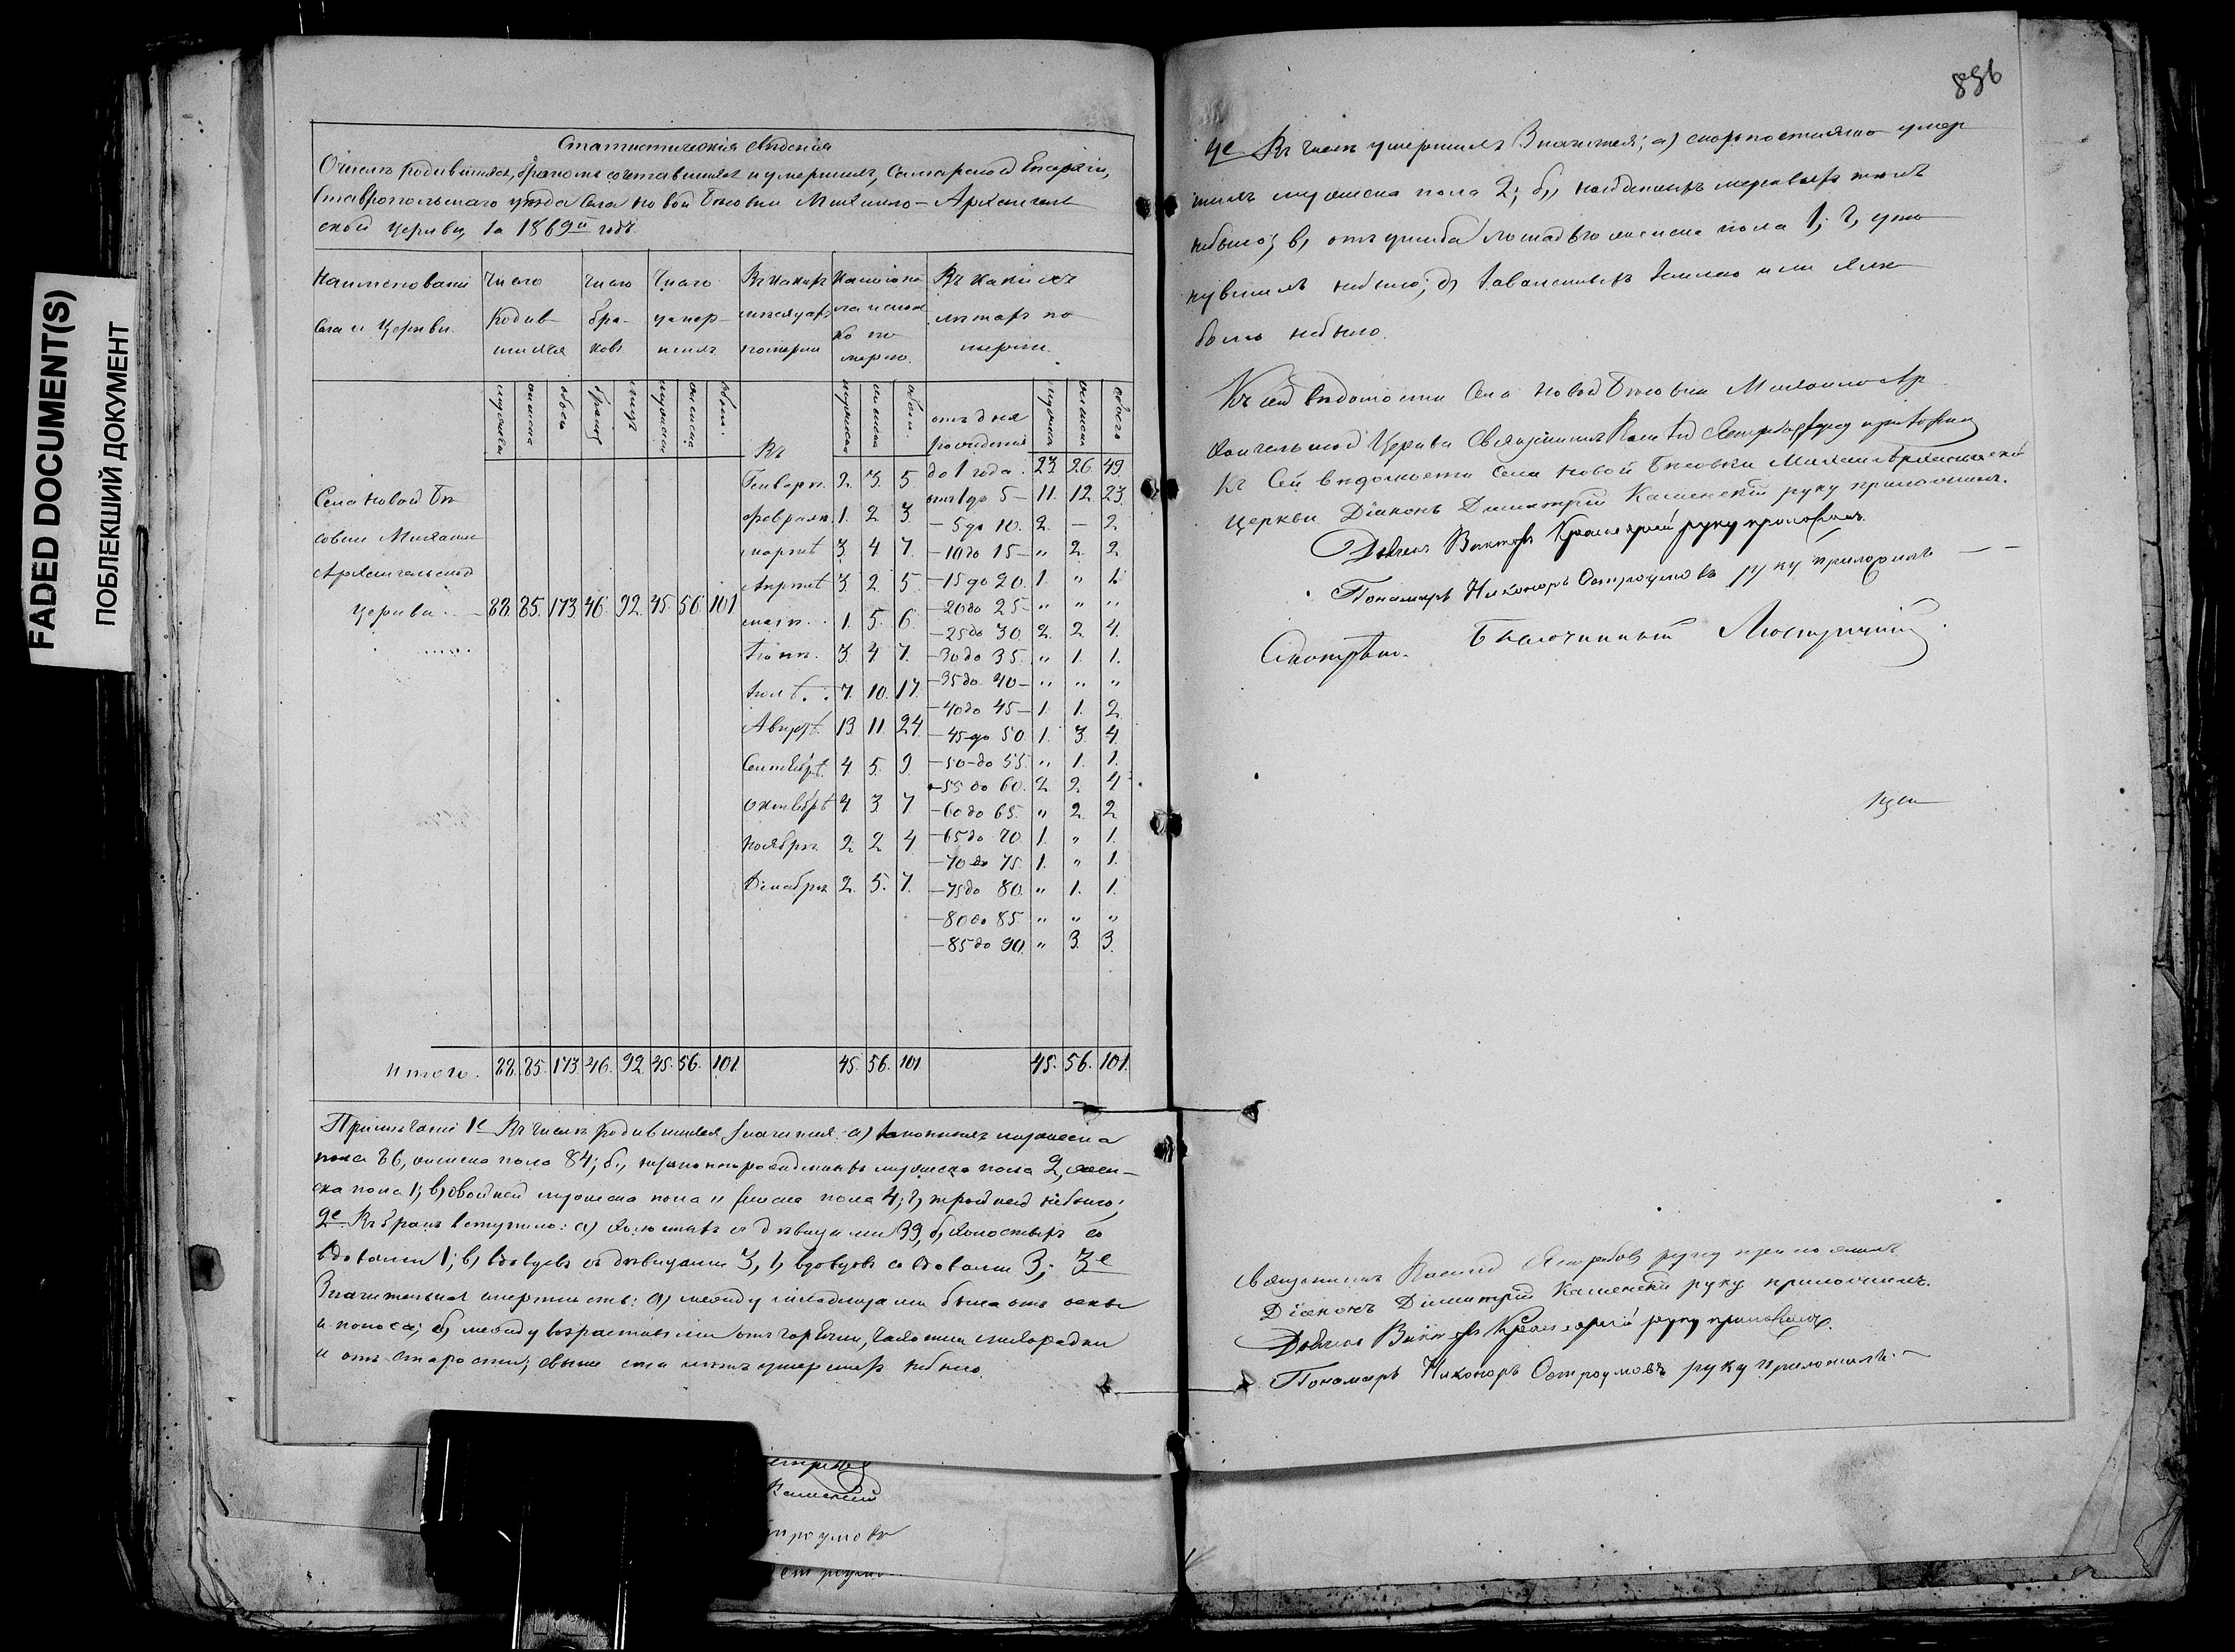 FADED DOCUMENT(S)
ПОБЛЕКШИЙ ДОКУМЕНТ
Статистическія свѣдѣнія
О числѣ родившихся, бракомъ сочетавшихся и умершихъ, Самарской Епархіи,
Ставропольскаго уѣзда Села Новой Бѣсовки Михаило-Архангель
ской церкви, за 1869й годъ.
Наименованіе Села и Церкви.
Число родив-шихся
Число бра-ковъ
Число умер-шихъ
Въ какихъ мѣсяцахъ померли
Какого по ла и сколь ко по мерло.
Въ какихъ лѣтахъ по мерли.
мужеска
женска
обоего
браковъ
лицъ
мужеска
женска
обоего
мужеска
женска
обоего
мужеска
женска
обоего
Въ
отъ дня рожденія
Генварѣ. 2. 3. 5. до 1 года. 23. 26. 49
Села Новой Бѣ
отъ 1 до 5 – 11. 12. 23.
Февралѣ. 1. 2. 3. – 5 до 10. 2. – 2
совки Михаило
мартѣ 3. 4 7. – 10 до 15 – " 2. 2.
Архангельской
Апрѣлѣ 3. 2. 5. – 15 до 20. 1. " 1.
Церкви. 88. 85. 173. 46. 92. 45. 56. 101
– 20 до 25 – " " "
маѣ. 1. 5. 6. – 25 до 30. 2. 2. 4.
Іюнѣ. 3. 4 7. – 30 до 35. " 1. 1.
Іюлѣ. 7. 10. 17. – 35 до 40 – " " "
– 40 до 45 – 1. 1. 2.
Августѣ. 13. 11. 24. – 45 до 50. 1. 3. 4.
Сентябрѣ. 4. 5. 9. – 50 до 55. " 1. 1.
– 55 до 60. 2. 2. 4
Октябрѣ 4. 3 7 – 60 до 65. " 2. 2.
Ноябрѣ. 2. 2 4 – 65 до 70. 1. " 1.
– 70 до 75. 1. " 1.
Декабрѣ. 2. 5. 7. – 75 до 80. " 1. 1.
– 80 до 85. " " "
– 85 до 90. " 3. 3.
Итого. 88. 85. 173. 46. 92. 45. 56. 101. 45. 56. 101 45. 56. 101.
Примѣчаніе 1е Въ числѣ родившихся значится: а) законныхъ мужеска
пола 86, женска пола 84; б, незаконнорожденныхъ мужеска пола 2, жен-
ска пола 1; в) двойней мужеска пола " женска пола 4; г, тройней небыло;
2е Въ бракъ вступило: а) холостыхъ съ дѣвицами 39, б, холостыхъ со
вдовами 1; в, вдовцовъ съ дѣвицами 3, г, вдовцовъ со вдовами 3; 3е
Значительная смертность: а) между младенцами была отъ оспы
и поноса; б, между возрастными отъ горячки, чахотки лихорадки
и отъ старости; свыше ста лѣтъ умершихъ небыло.
836
4е Въ числѣ умершихъ Значится; а) скоропостижно умер
шихъ мужеска пола 2; б, найденныхъ мертвыхъ тѣлъ
небыло; в, отъ ушиба лошадью женска пола 1; г, уто
нувшихъ небыло; д, заваленныхъ землею или
было небыло.
Къ сей вѣдомости Села Новой Бѣсовки Михаило Ар
хангельской Церкви Священникъ Ястребовъ руку приложилъ
Къ Сей вѣдомости Села Новой Бѣсовки Михаило Архангельской
Церкви Діаконъ Димитрій Каменскій руку приложилъ.
Дьячекъ Викторъ Красноярскій руку приложилъ.
Пономарь Никоноръ Остроумовъ руку приложилъ
Смотрѣлъ. Благочинный
Священникъ Ястребовъ руку приложилъ
Діаконъ Димитрій Каменскій руку приложилъ.
Дьячекъ Викторъ Красноярскій руку приложилъ.
Пономарь Никоноръ Остроумовъ руку приложилъ.
Каменскій